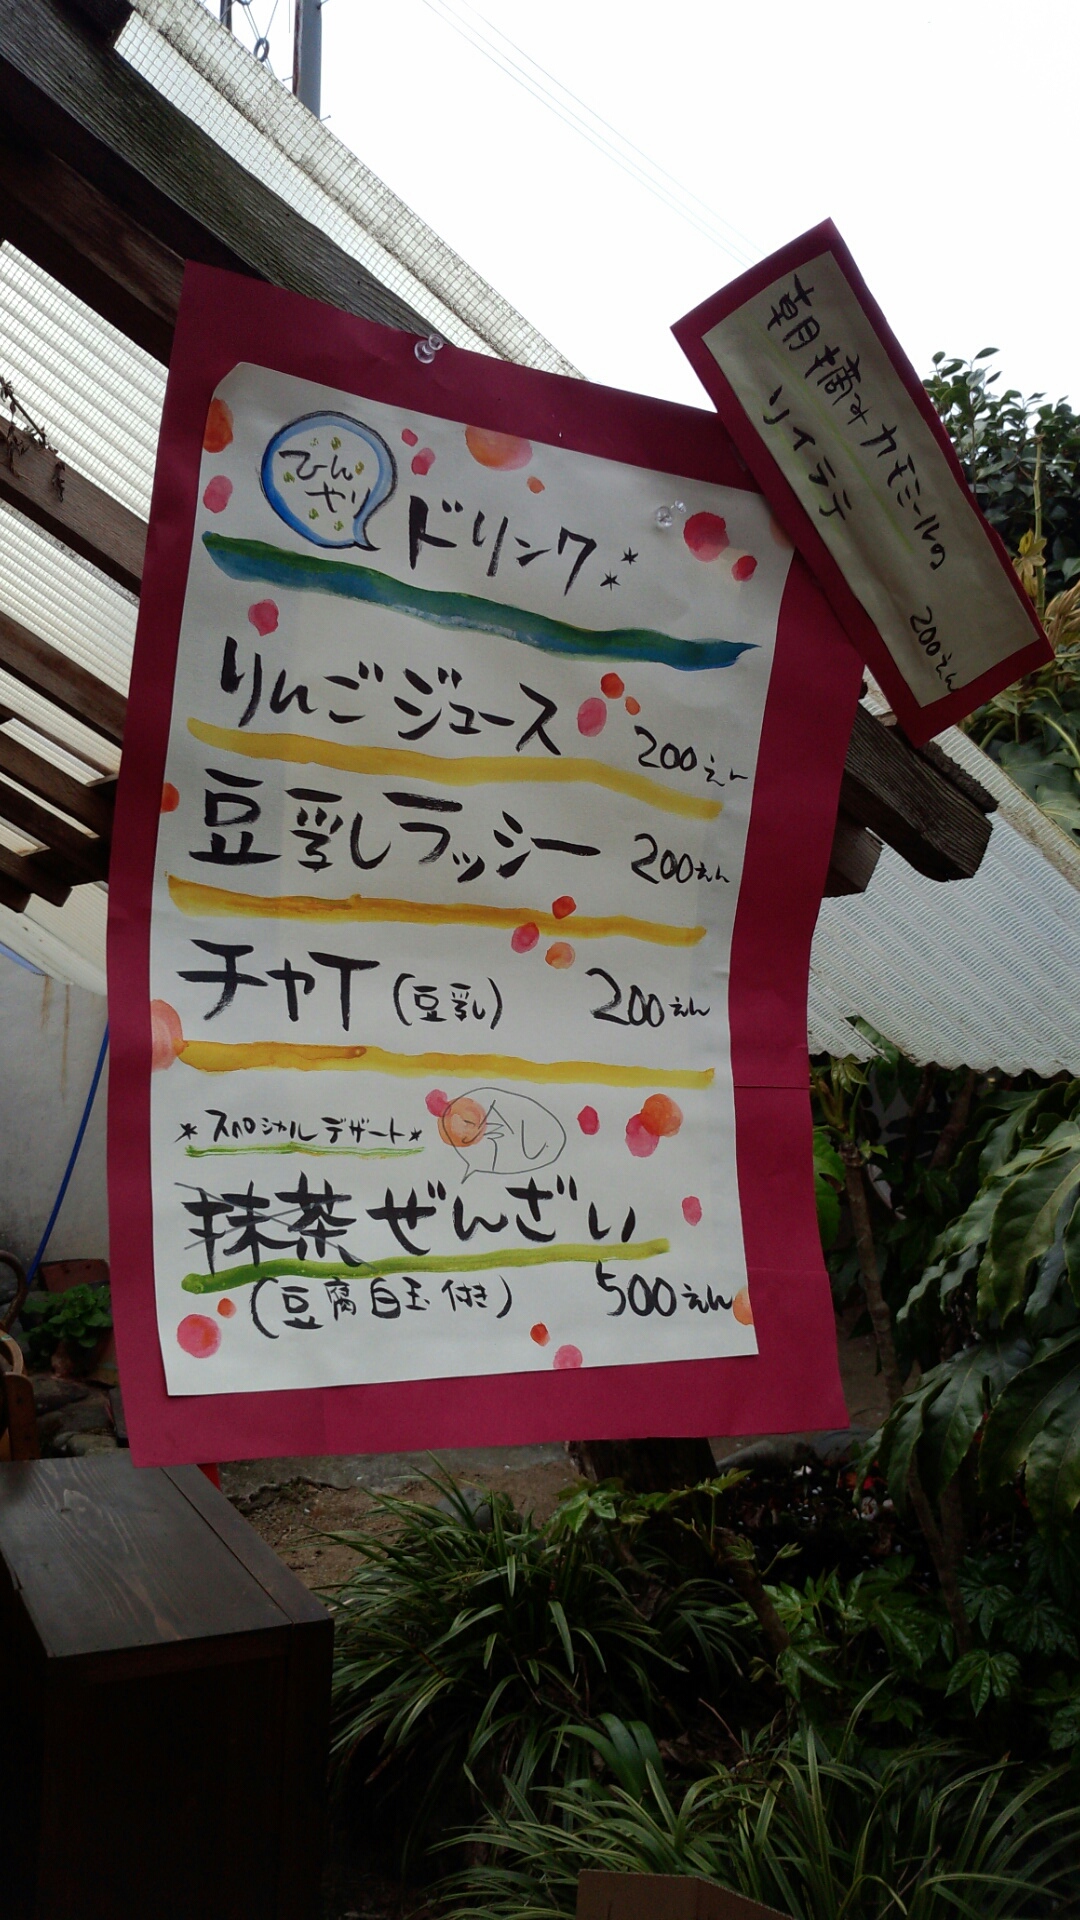 ひん
やり
ドリンク
りんごジュース 200えん
豆乳ラッシー 200えん
チャイ(豆乳) 200えん
*スペシャルデザート*
冷し
抹茶ぜんざい
(豆腐白玉付き) 500えん
朝摘みカモミールの
ソイラテ
200えん